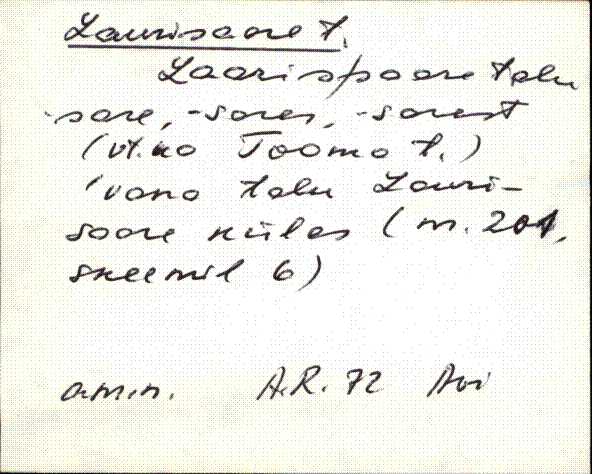 Laurisaare t.
Laarispoare talu
-sare, -sares, -sarest
(vt. ka Toomo t.)
'vana talu Lauri-
saare külas (m. 201,
skeemil 6)
amin. A.R. 72 Avi